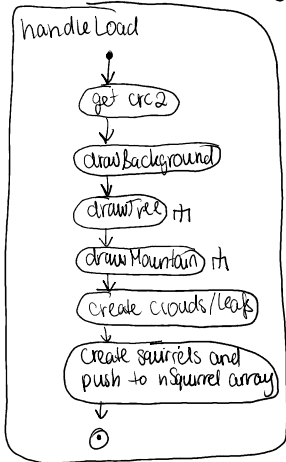 handleLoad
get crc2
drawBackground
drawTree
drawMountain
create clouds/leafs
create squirrels and
push to nSquirrel array